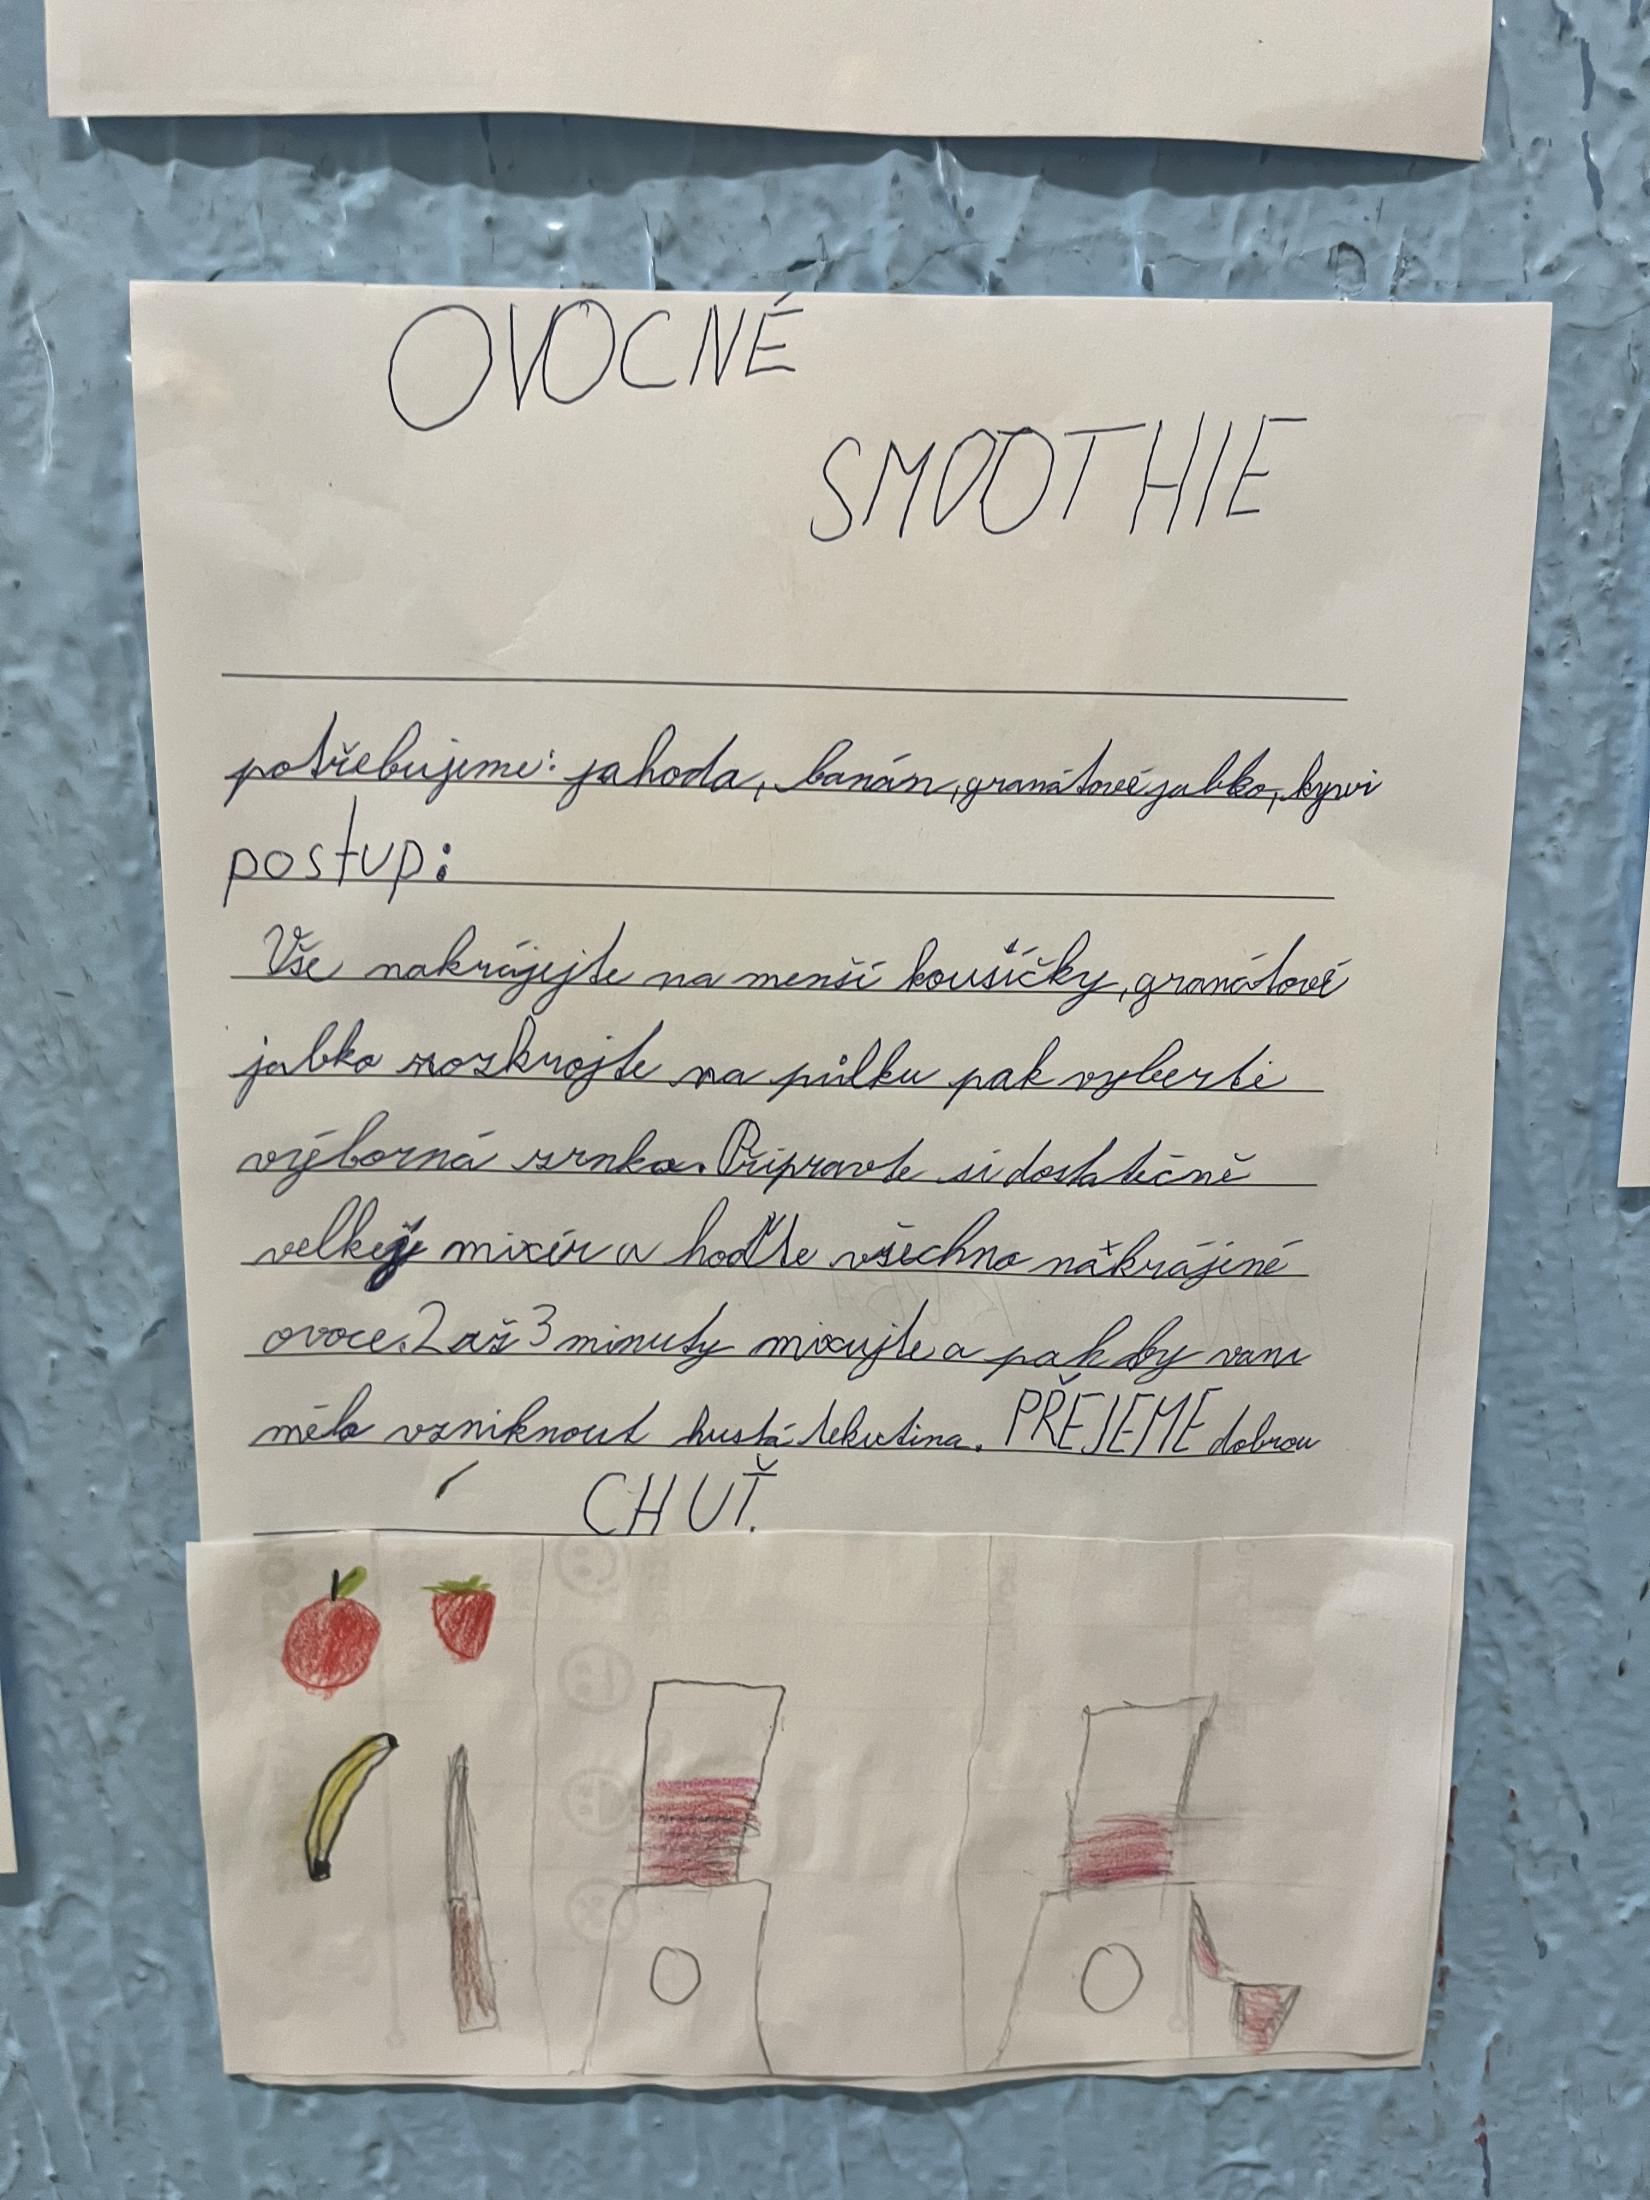 OVOCNÉ
SMOOTHIE
potřebujeme: jahoda, banán, granátové jabko, kywi
postup:
Vše nakrájejte na menší koušíčky, granátové
jabko rozkrojte na půlku pak vyberte
výborná zrnka. Připravte si dostatečně
velký mixér a hoďte všechno nakrájené
ovoce. 2 až 3 minuty mixujte a pak by vam
mělo vzniknout hustá tekutina. PŘEJEME dobrou
CHUŤ.